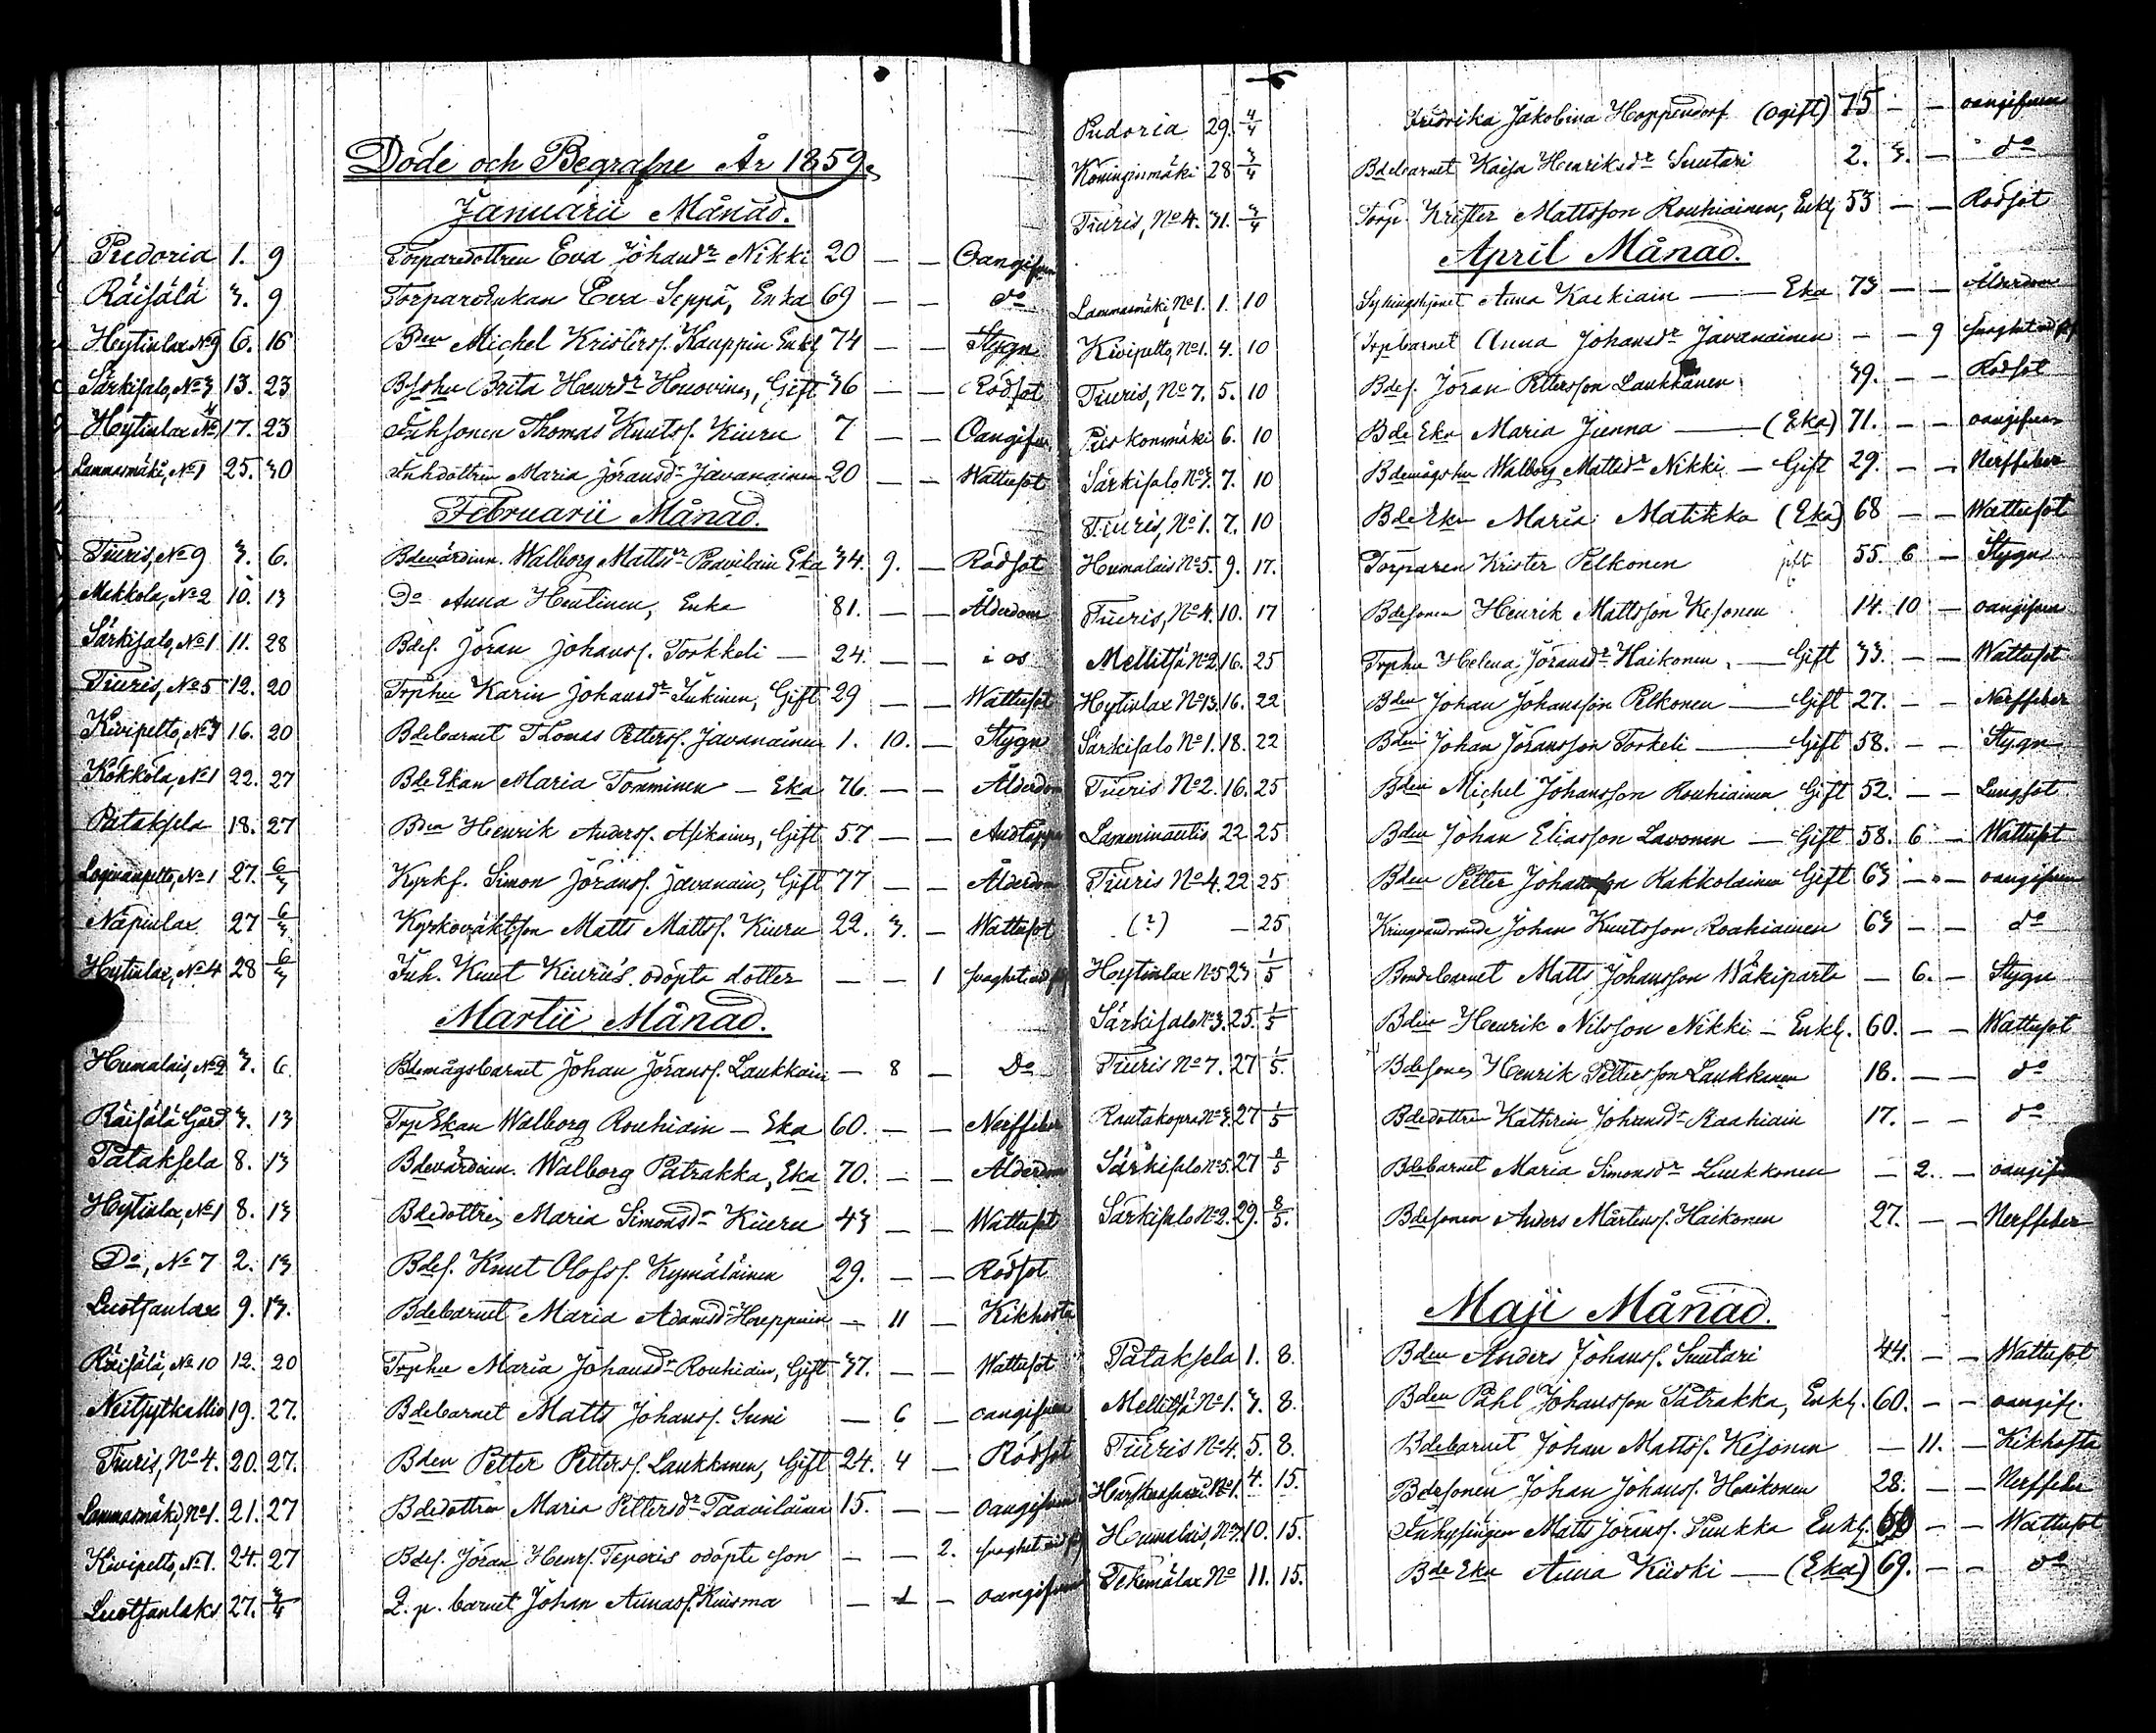 Döde och Begrafne År 1859.
Januarii Månad.
Pudoria 1. 9 Torparedottren Eva Johansdr Nikki 20 — — Oangifven
Räisälä 3. 9 Torpareenkan Eva Seppä, Enka 69 — — do
Heytinlax No 9 6. 16 Bden Michel Kristersf. Kauppin Enkl 74 — — Stygn
Särkisalo, No 3 13. 23 Brita Henrdr Gift 36 — — Rödsot
Heytinlax No 4 17. 23 Inhsonen Thomas Knutsf. Kiuru 7 — — Oangifven
Lammasmäki, No 1 25. 30 Inhdottren Maria Joransdr Javanainen 20 — — Wattusot
Februarii Månad.
Tiuris, No 9 3. 6. Bdevärdinn. Walborg Mattsdr Paavilain Eka 34. 9. — Rödsot
Makkola, No 2 10. 13 Do Anna Hentinen, Enka 81. — — Ålderdom
Särkisalo, No 1 11. 28 Bdes. Jöran Johansf. Torkkeli — 24. — — i os
Tiuris, No 5 12. 20 Trphu Karin Johansdr Inkinen, Gift 29 — — Wattusot
Kivipelto, No 3 16. 20 Bdebarnet Thomas Pettersf. Javanainen 1. 10. — Stygn
Kökkölä, No 1 22. 27 BdeEkan Maria Tomminen — Eka 76. — — Ålderdom
Pataksela 18. 27 Bden Henrik Andersf. Asikainen, Gift 57 — — Andtäppa
No 1 27. 6/3 Kyrkf. Simon Joransf. Javanain, Gift 77 — — Ålderdom
Näpinlax 27 6/3 Kyrkoväktson Matts Mattsf. Kiuru 22. 3. — Wattusot
Heytinlax, No 4 28 6/3 Inh. Knut Kiuru's odöpta dotter — — 1 svaghet vid
Martii Månad.
Humalais, No 2 3. 6. Bdemågsbarnet Johan Joransf. Laukkain — 8 — Do
Räisälä Gård 3. 13 TrpEkan Walborg Rouhiain — Eka 60. — — Nerffeber
Pataksela 8. 13 Bdevärdinn. Walborg Patrakka, Eka 70. — — Ålderdom
Heytinlax, No 1 8. 13 Bdedottren Maria Simonsdr Kiuru 43 — — Wattusot
Do, No 7 2. 13 Bdes. Knut Olofsf. Kymäläinen 29. — — Rödsot
Luotsanlax 9. 13. Bdebarnet Maria Adamsdr — 11 — Kikhosta
Räisälä, No 10 12. 20 Trphu Maria Johansdr Rouhiain, Gift 37. — — Wattusot
Neitsytkallio 19. 27. Bdebarnet Matts Johansf. Suni — 6 — oangifven
Tiuris, No 4. 20. 27. Bden Petter Pettersf. Laukkanen, Gift 24. 4 — Rödsot
Lammasmäki, No 1. 21. 27 Bdedottren Maria Pettersdr Paavilainen 15. — — oangifven
Kivipelto, No 1. 24. 27 Bdes. Jöran Henrs. Teporis odöpte son — — 2. svaghet vid
Luotsanlaks 27. 3/4 Q. p. barnet Johan Annasf. Kuisma — 1 — oangifven
Pudoria 29. 4/4 Fredrika Jakobina Hoppendorf (Ogift) 75 — — oangifven
Koninginmäki 28 3/4 Bdebarnet Kaisa Henriksdr Suutari 2. 3. — do
Tiuris, No 4. 31. 3/4 Torp. Krister Mattsson Rouhiainen, Enkl 53 — — Rödsot
April Månad.
Lammasmäki, No 1. 1. 10 Anna Kaekiain — Eka 73 — — Ålderdom
Kivipelto, No 1. 4. 10 Trpbarnet Anna Johansdr Javanainen — — 9 svaghet vid
Tiuris, No 7. 5. 10 Bdes. Jöran Pettersson Laukkanen 39. — — Rödsot
Piskonmäki 6. 10 BdeEka Maria Junna — (Eka) 71. — — oangifven
Särkisalo No 3. 7. 10 Bdemågshu Walborg Mattsdr Nikki — Gift 29. — — Nerffeber
Tiuris, No 1. 7. 10 BdeEka Maria Matikka (Eka) 68 — — Wattusot
Humalais No 5. 9. 17. Torparen Krister Pelkonen gift 55. 6 — Stygn
Tiuris, No 4. 10. 17 Bdesonen Henrik Mattsson Kesonen 14. 10 — oangifven
Mellitsä No 2. 16. 25 Trphu Helena Joransdr Haikonen — Gift 33. — — Wattusot
Heytinlax No 13. 16. 22 Bden Johan Johansson Pelkonen — Gift 27. — — Nerffeber
Särkisalo No 1. 18. 22 Bden Johan Joransson Torkeli — Gift 58. — — Stygn
Tiuris No 2. 16. 25 Bden Michel Johansson Rouhiainen Gift 52. — — Lungsot
Lamminautis 22 25 Bden Johan Eliasson Lavonen — Gift 58. 6 — Wattusot
Tiuris No 4. 22 25 Bden Petter Johansson Kakkolainen Gift 63 — — oangifven
(?) — 25 Kringvandrande Johan Knutsson Roahiainen 63 — — do
Heytinlax No 5 23 1/5 Bondebarnet Matts Johansson Wäkiparta — 6. — Stygn
Särkisalo No 3. 25. 1/5 Bden Henrik Nilsson Nikki — Enkl. 60. — — Wattusot
Tiuris No 7. 27 1/5. Bdesonen Henrik Pettersson Laukkanen 18. — — do
Rautakopra No 3. 27 1/5 Bdedottren Kathrin Johansdr Raahiain 17. — — do
Särkisalo No 5. 27 8/5 Bdebarnet Maria Simonsdr Luukkonen — 2. — oangifven
Särkisalo No 2. 29. 8/5. Bdesonen Anders Mårtensf. Haikonen 27. — — Nerffeber
Maji Månad.
Pataksela 1. 8. Bden Anders Johansf. Suutari 44. — — Wattusot
Mellitsä No 1. 3. 8. Bden Påhl Johansson Patrakka, Enkl. 60. — — oangifv.
Tiuris No 4. 5. 8. Bdebarnet Johan Mattsf. Kesonen — 11. — Kikhosta
No 1. 4. 15. Bdesonen Johan Johansf. Haikonen 28. — — Nerffeber
Humalais, No 7. 10. 15. Inhysingen Matts Joransf. Puukka Enkl. — — Wattusot
Tekemälax No 11. 15. BdeEka Anna Kiiski — (Eka) 69. — — do